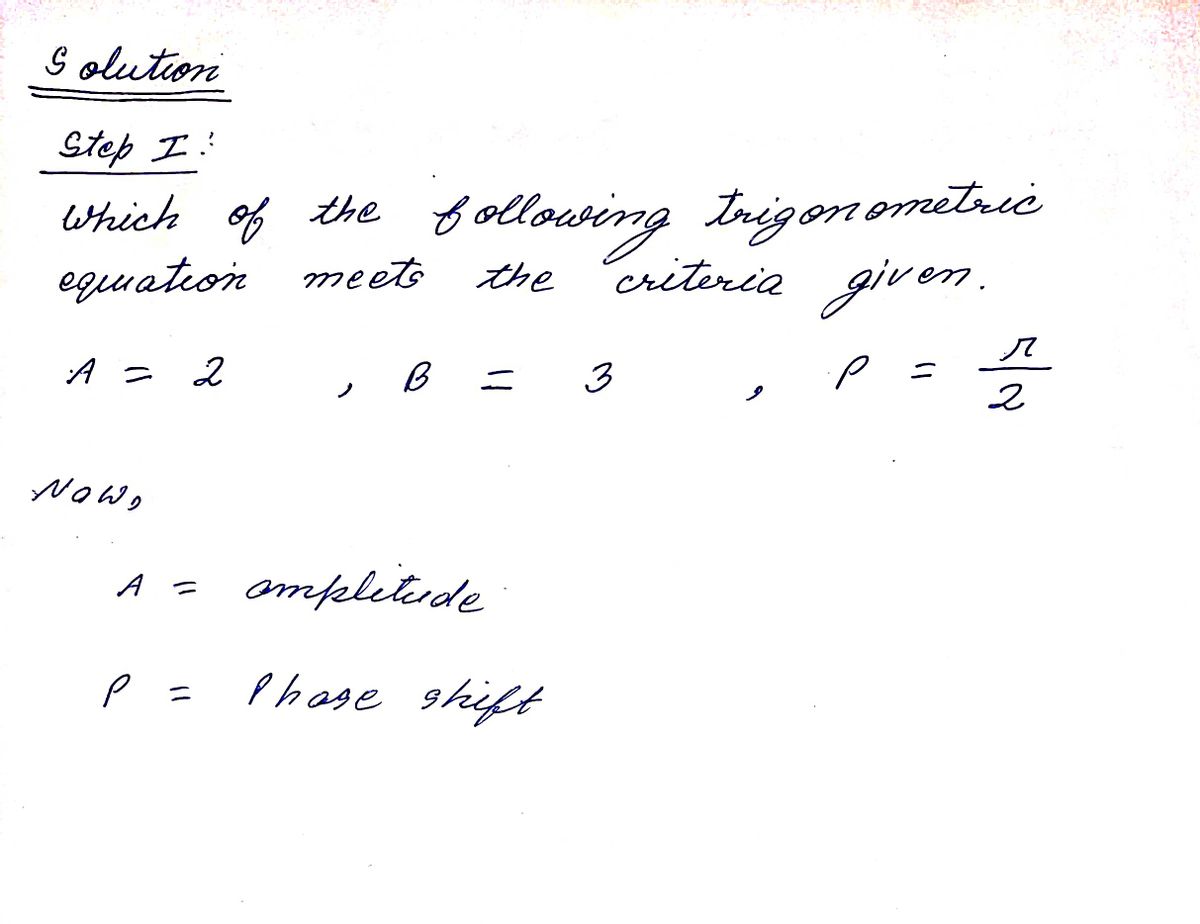 Solution
Step I:
Which of the following trigonometric
equation meets the criteria given.
A = 2 , B = 3 , P = π/2
Now,
A = amplitude
P = Phase shift